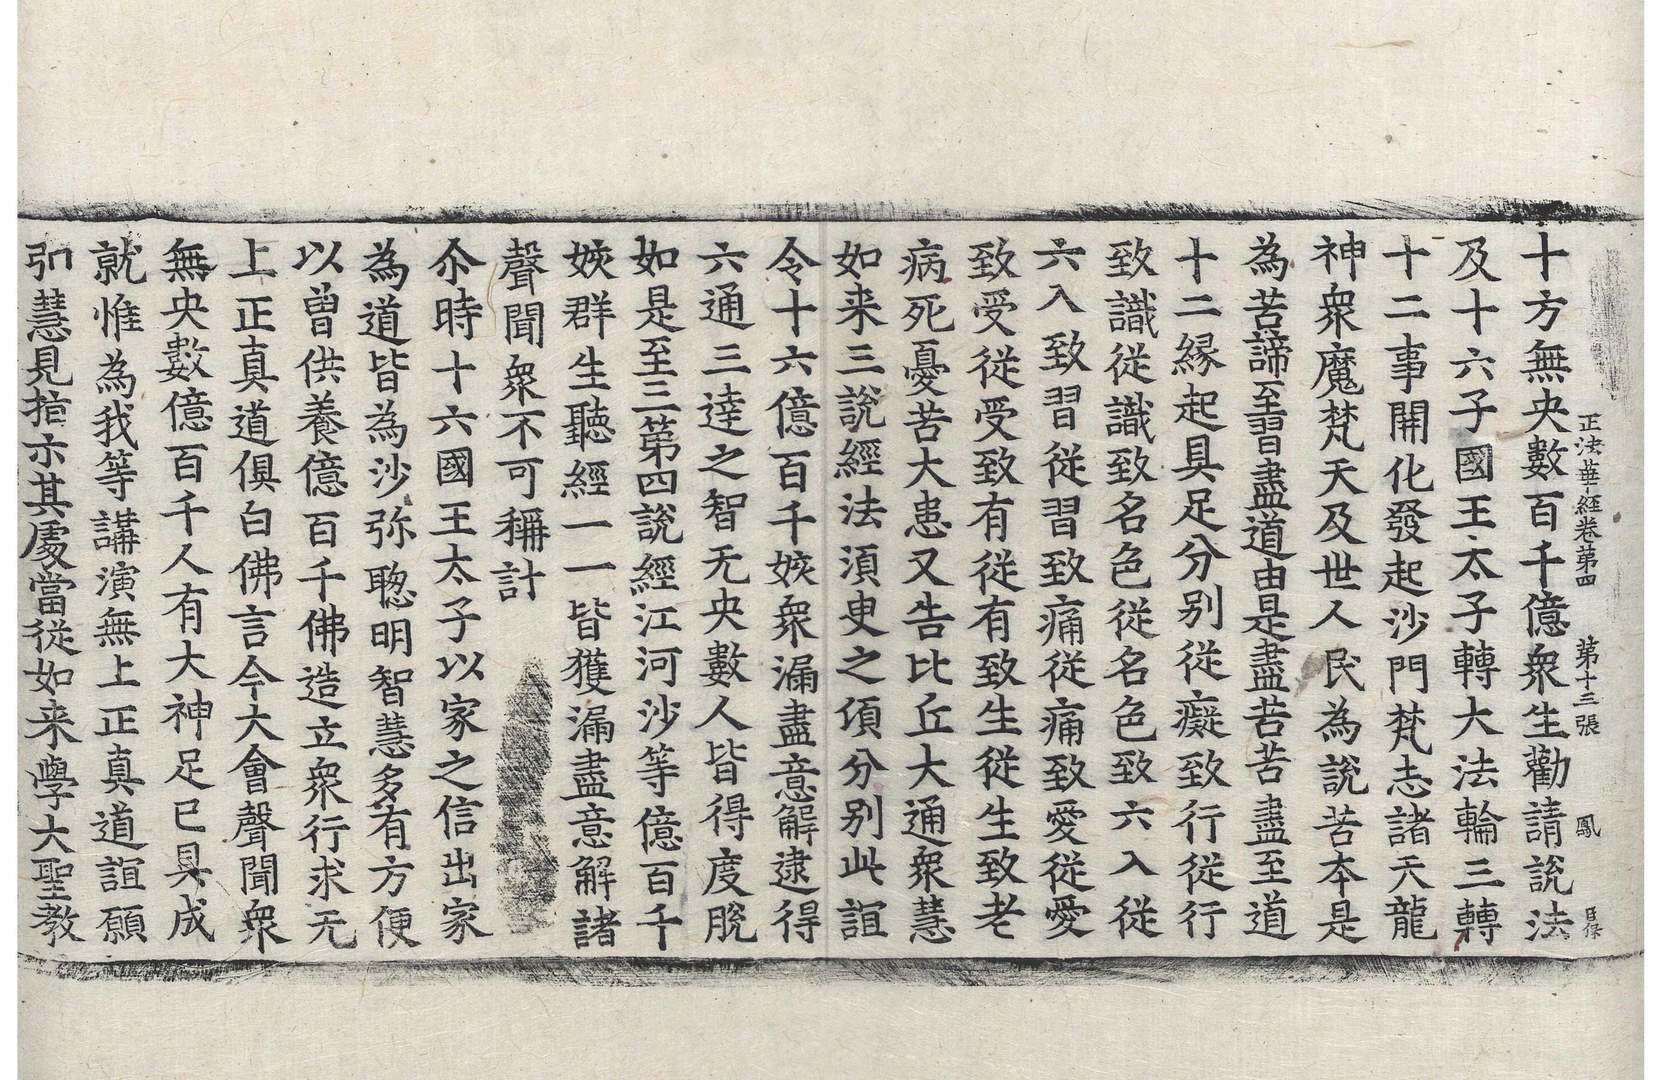 正法華經卷第四 第十三張 鳳
十方無央數百千億衆生勸請說法
及十六子國王太子轉大法輪三轉
十二事開化發起沙門梵志諸天龍
神衆魔梵天及世人民為說苦本是
為苦諦至習盡道由是盡苦苦盡至道
十二緣起具足分別從癡致行從行
致識從識致名色從名色致六入從
六入致習從習致痛從痛致愛從愛
致受從受致有從有致生從生致老
病死憂苦大患又告比丘大通衆慧
如来三說經法須臾之頃分別此誼
令十六億百千姟衆漏盡意解逮得
六通三達之智无央數人皆得度脫
如是至三第四說經江河沙等億百千
姟群生聽經一一皆獲漏盡意解諸
聲聞衆不可稱計
尒時十六國王太子以家之信出家
為道皆為沙弥聦明智慧多有方便
以曾供養億百千佛造立衆行求无
上正真道俱白佛言今大會聲聞衆
無央數億百千人有大神足已具成
就惟為我等講演無上正真道誼願
弘慧見指示其處當從如来學大聖教